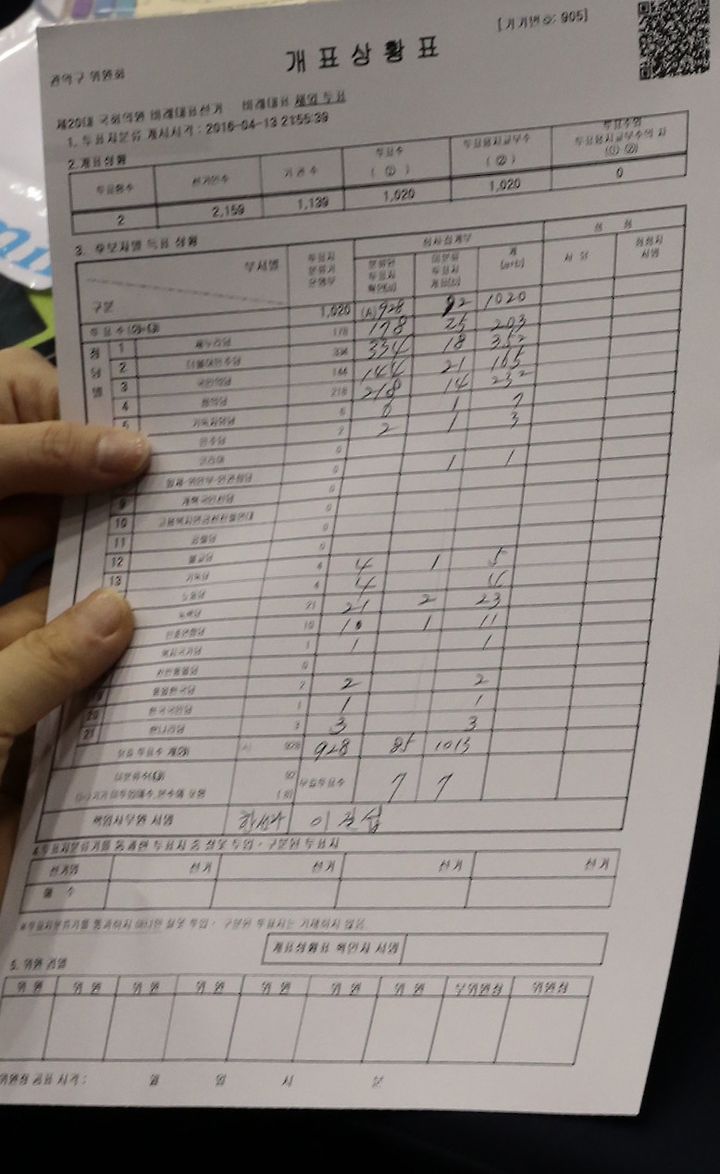 [기기번호: 905]
개표상황표
관악구 위원회
제20대 국회의원 비례대표선거 비례대표 재외 투표
1. 투표지분류 개시시각 : 2016-04-13 21:55:39
2. 개표상황
투표함수 선거인수 기권수 투표수 ( ① ) 투표용지교부수 ( ② ) 투표수와 투표용지교부수의 차 (①-②)
2 2,159 1,139 1,020 1,020 0
3. 후보자별 득표 상황
구분 부서별 투표지분류기운영부 심사집계부
분류된 투표지 확인(a) 미분류 투표지 개표(b) 계 (a+b)
투표수 1,020 (A)928 92 1020
정당별
1 새누리당 178 178 25 203
2 더불어민주당 334 334 18 352
3 국민의당 144 144 21 165
4 정의당 218 218 14 232
5 기독자유당 6 6 1 7
민주당 2 2 1 3
코리아 0 1 1
0
9 개혁국민신당 0
10 고용복지연금선진화연대 0
11 공화당 0
12 불교당 4 4 1 5
13 기독당 4 4
노동당 21 21 2 23
녹색당 10 10 1 11
민중연합당 1 1 1
복지국가당 0
친반통일당 2 2 2
통일한국당 1 1 1
20 한국국민당 3 3 3
21 한나라당
928 928 85 1013
무효투표수 7 7
책임사무원 서명
4. 투표지분류기를 통과한 투표지 중 잘못 투입·구분된 투표지
선거명 선거 선거 선거 선거
매 수
※투표지분류기를 통과하지 아니한 잘못 투입·구분된 투표지는 기재하지 않음.
개표상황표 확인자 서명
5. 위원 검열
위 원 위 원 위 원 위 원 위 원 위 원 위 원 부위원장 위원장
위원장 공표 시각 : 월 일 시 분